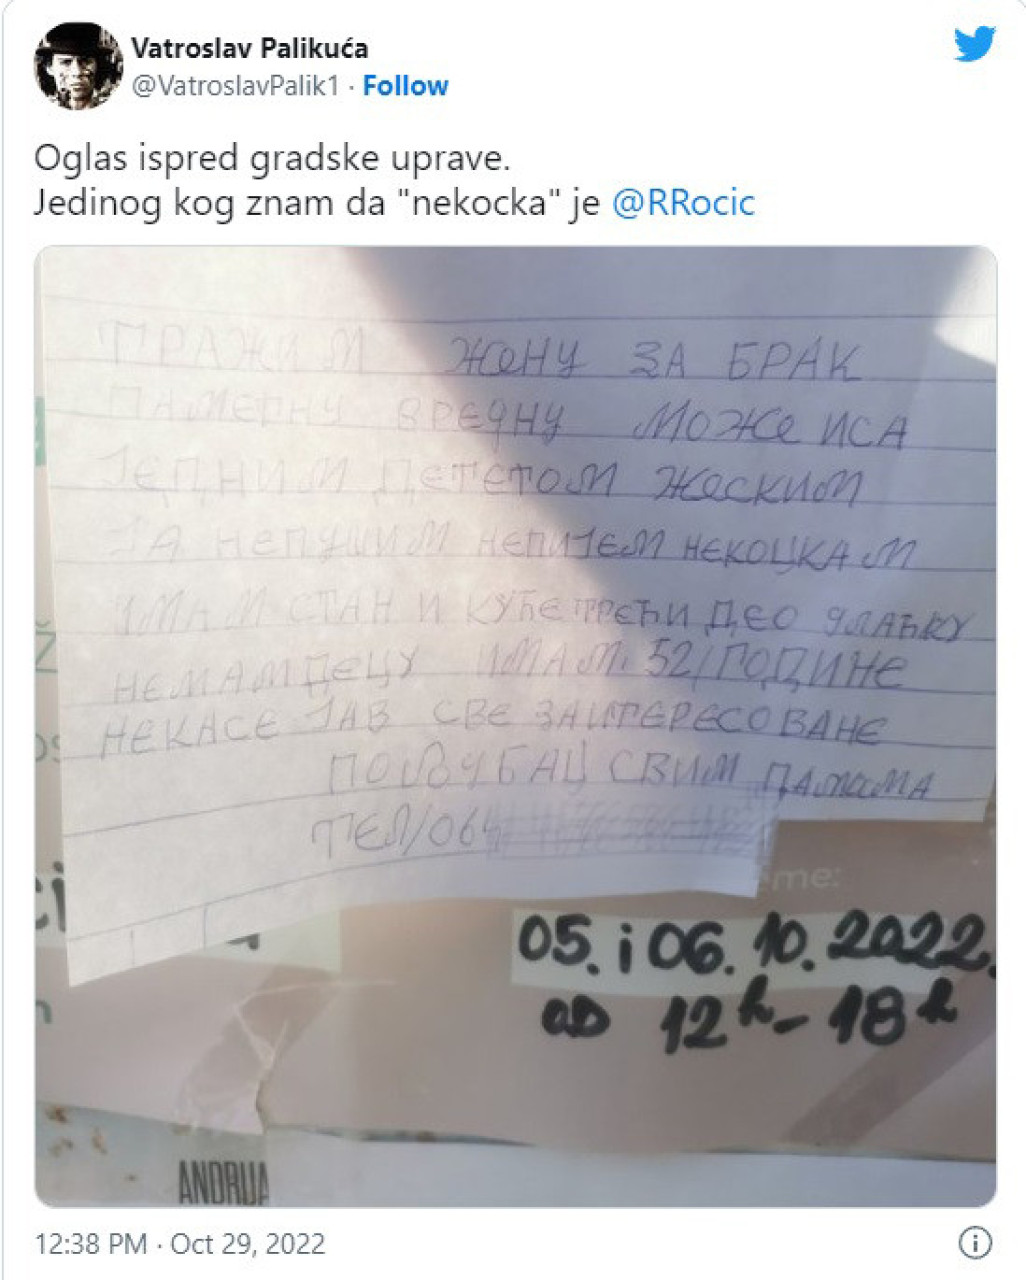 Vatroslav Palikuća
@VatroslavPalik1 · Follow
Oglas ispred gradske uprave.
Jedinog kog znam da "nekocka" je @RRocic
ТРАЖИМ ЖЕНУ ЗА БРАК
ПАМЕРНУ ВРЕДНУ МОЖЕ ИСА
ЈЕДНИМ ДЕТЕТОМ ЖЕСКИМ
ЈА НЕПУШИМ НЕПИЈЕМ НЕКОЦКАМ
ИМАМ СТАН И КУЋЕ ТРЕЋИ ДЕО
НЕМАМ ДЕЦУ ИМАМ 52/ГОДИНЕ
НЕКАСЕ ЈАВ СВЕ ЗАИТЕРЕСОВАНЕ
ПОЉУБАЦ СВИМ ДАМАМА
ТЕЛ/064
eme:
05. i 06. 10. 2022.
OD 12h - 18h
ANDRIJA
12:38 PM · Oct 29, 2022